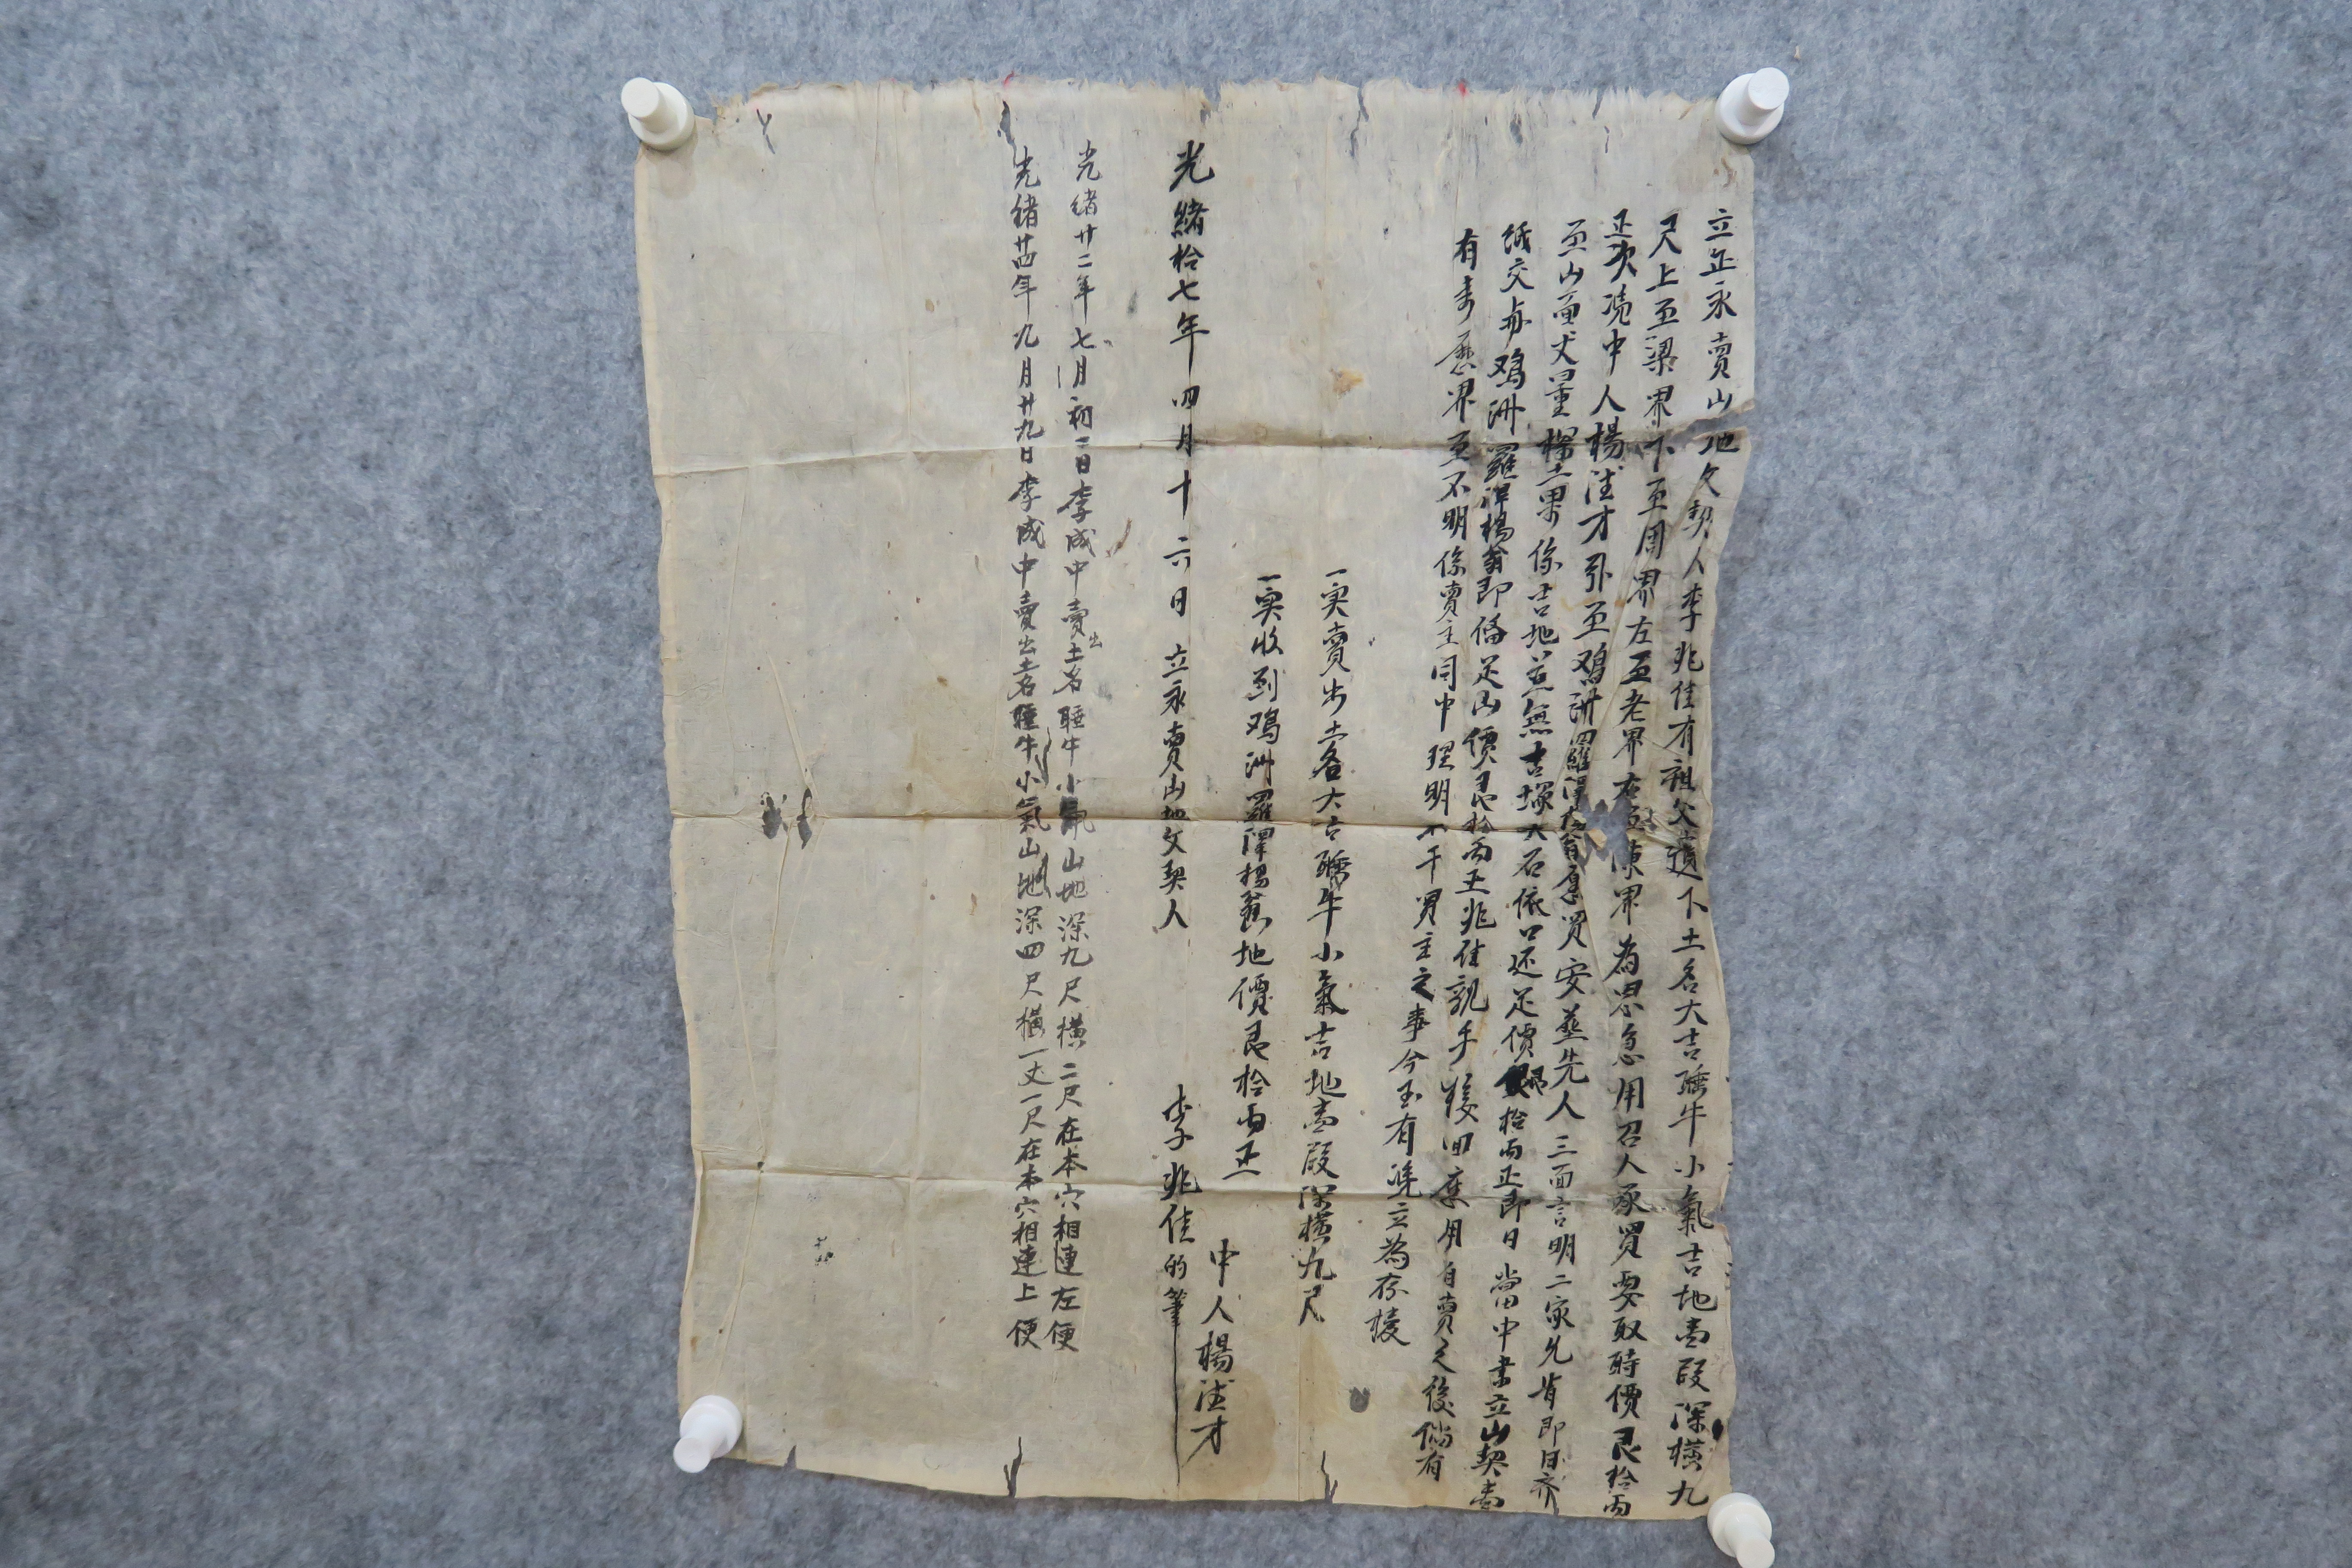 立正永賣山地文契人李兆佳有祖父遺下土名大吉睡牛小氣吉地壹段深橫九
尺上至梁界下至周界左至老界右至陳界為思急用召人承買要取時價艮拾兩
正次憑中人楊法才引至鸡洲羅潭楊翁愿買安葬先人三面言明二家允肯即日齐
至山面丈量楞土果係吉地並無古塚大石依口还足價銀拾兩正即日當中書立山契壹
紙交與鸡洲羅潭楊翁即俻足山價艮拾兩正兆佳親手接回應用自賣之後倘有
有来歷界至不明係賣主同中理明不干買主之事今玉有凴立為存據
一实賣出土名大吉睡牛小氣吉地壹段深橫九尺
一实收到鸡洲羅潭楊翁地價艮拾兩正
中人楊法才
光緒拾七年四月十六日立永賣山地文契人 李兆佳的筆
光绪廿二年七月初二日李成中賣出土名睡牛小氣山地深九尺橫二尺在本穴相連左便
光绪廿四年九月廿九日李成中賣出土名睡牛小氣山地深四尺橫一丈一尺在本穴相連上便